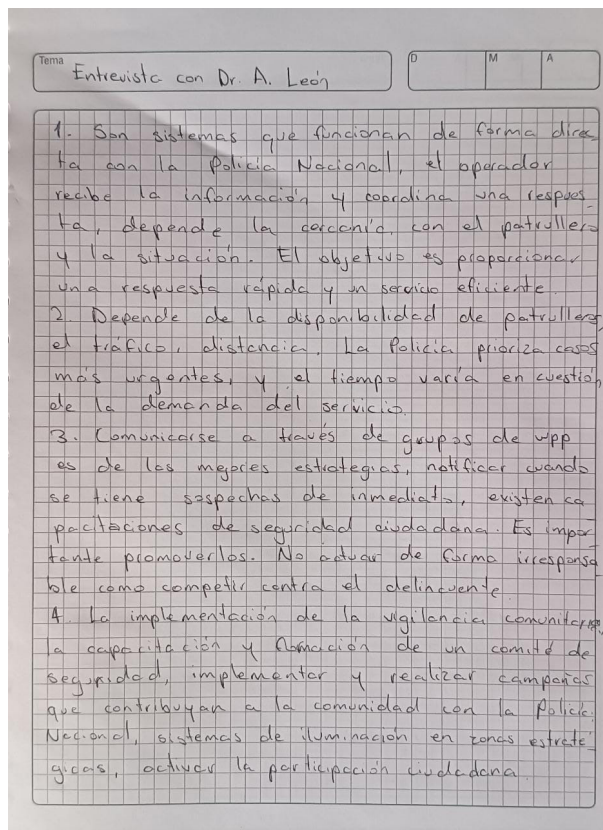 Tema
Entrevista con Dr. A. León
D
M
A
1. Son sistemas que funcionan de forma direc
ta con la Policia Nacional, el operador
recibe la información y coordina una respues_
ta, depende la cercania, con el patrullero
y la situación. El objetivo es proporcionar
una respuesta rápida y un servicio eficiente.
2. Depende de la disponibilidad de patrulleros,
el tráfico, distancia. La Policia prioriza casos
más urgentes, y el tiempo varía en cuestión,
de la demanda del servicio.
3. Comunicarse a través de grupos de wpp
es de las mejores estrategias, notificar cuando
se tiene sospechas de inmediato, existen ca
pacitaciones de seguridad ciudadana. Es impor
tante promoverlos. No actuar de forma irresponsa
ble como competir contra el delincuente.
4. La implementación de la vigilancia comunitaria,
la capacitación y formación de un comité de
seguridad, implementar y realizar campañas
que contribuyan a la comunidad con la Policia
Nacional, sistemas de iluminación en zonas estraté
gicas, activar la participación ciudadana.